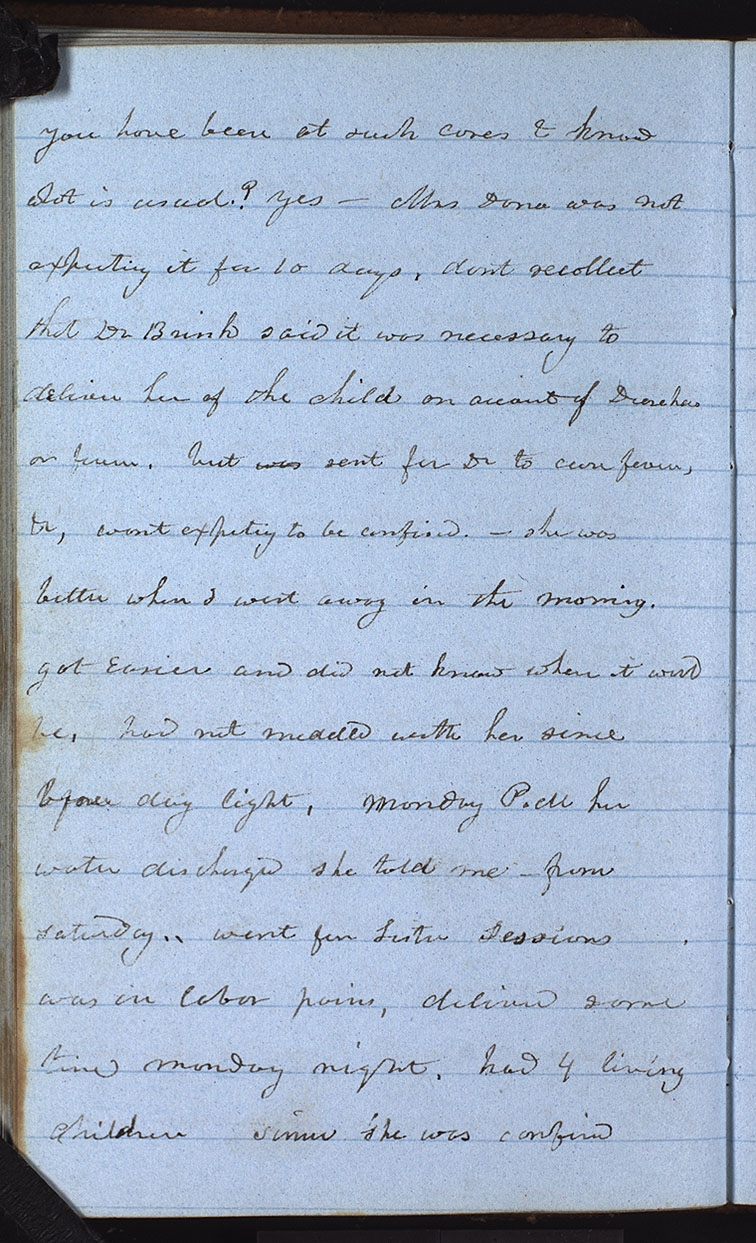 you have been at such cases & know
what is usual? yes — Mrs Dana was not
expecting it for 10 days, dont recollect
that Dr Brink said it was necessary to
deliver her of the child on account of
or fever. but was sent for Dr to cure fever,
&c, wasnt expecting to be confined. — she was
better when I went away in the morning.
got Easier and did not know when it would
be, had not meddled with her since
before day light, monday P.M her
water discharged she told me — from
saturday.. went for Sister Sessions
was in labor pains, deliverd some
time monday night. had 4 living
children since she was confined